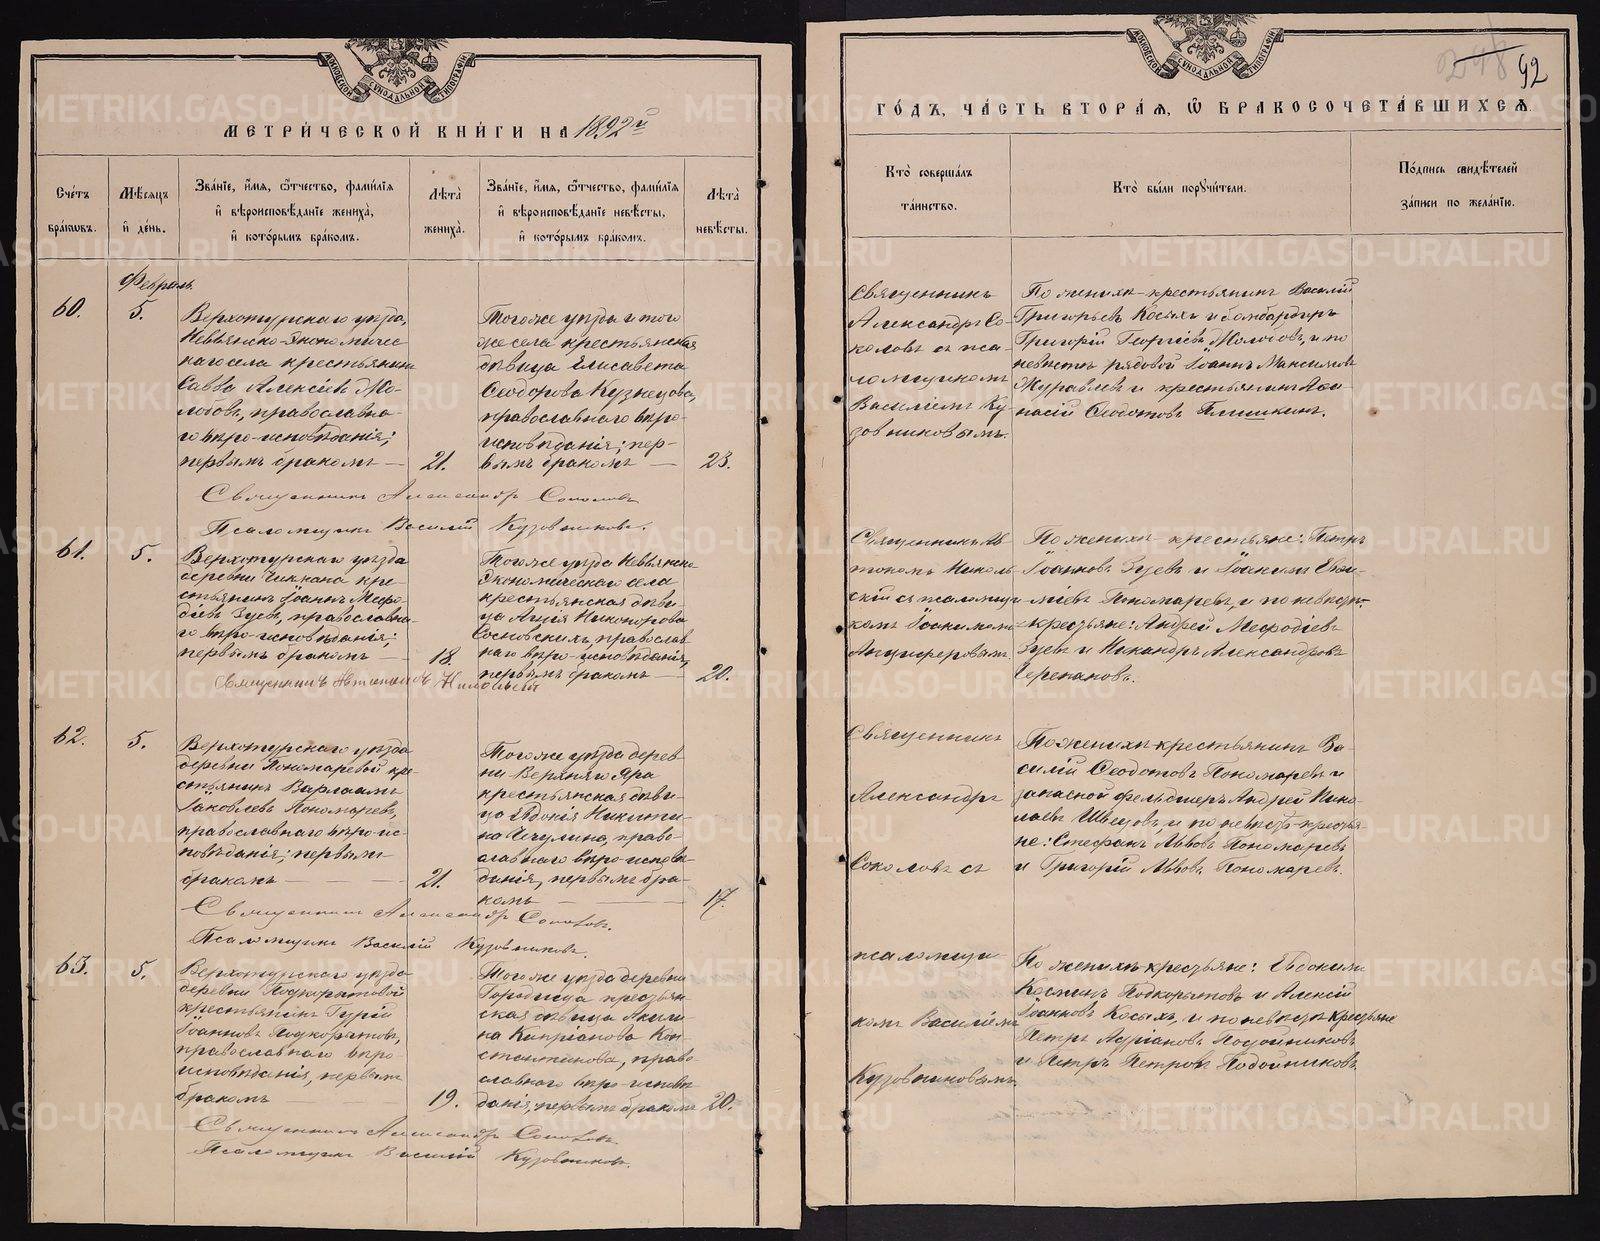 МОСКОВСКОЙ СѴНОДАЛЬНОЙ ТИПОГРАФІИ
МЕТРИ́ЧЕСКОЙ КНИ́ГИ НА 1892й
Сче́тъ бра́кѡвъ.
Мѣ́сяцъ и де́нь.
Зва́нїе, и́мя, ѻ́тчество, фами́лїя и вѣроисповѣ́данїе жениха̀, и кото́рымъ бра́комъ.
Лѣ́та жениха̀.
Зва́нїе, и́мя, ѻ́тчество, фами́лїя и вѣроисповѣ́данїе невѣ́сты, и кото́рымъ бра́комъ.
Лѣ́та невѣ́сты.
Февраль.
60.
5.
Верхотурскаго уѣзда,
Невьянско-Экономичес-
каго села крестьянинъ
Савва Алексѣевъ Мо-
лобовъ, православна-
го вѣро-исповѣданія;
первымъ бракомъ —
21.
Того же уѣзда и того
же села крестьянская
дѣвица Елисавета
Ѳеодорова Кузнецова,
православнаго вѣро-
исповѣданія; пер-
вымъ бракомъ —
23.
Священникъ Александръ Соколовъ
Псаломщикъ Василій Кузовниковъ.
61.
5.
Верхотурскаго уѣзда
деревни Чиккана кре-
стьянинъ Іоаннъ Меѳо-
діевъ Зуевъ, православна-
го вѣро-исповѣданія;
первымъ бракомъ —
18.
Того же уѣзда Невьянско
Экономическаго села
крестьянская дѣви-
ца Агнія Никонорова
Сосновскихъ, православ-
наго вѣро-исповѣданія,
первымъ бракомъ —
20.
Священникъ Автономъ Никольскій
62.
5.
Верхотурскаго уѣзда
деревни Пономаревой кре-
стьянинъ Варлаамъ
Іаковлевъ Пономаревъ,
православнаго вѣро-ис-
повѣданія; первымъ
бракомъ —
21.
Того же уѣзда дерев-
ни Верхняго Яра
крестьянская дѣви-
ца Евдокія Никити-
на Чечулина, право-
славнаго вѣро-исповѣ-
данія, первымъ бра-
комъ —
17.
Священникъ Александръ Соколовъ.
Псаломщикъ Василій Кузовниковъ.
63.
5.
Верхотурскаго уѣзда
деревни Подкорытовой
крестьянинъ Гурій
Іоанновъ Подкорытовъ,
православнаго вѣро-
исповѣданія, первымъ
бракомъ —
19.
Того же уѣзда деревни
Городища крестьян-
ская дѣвица Акили-
на Кипріанова Кон-
стантинова, право-
славнаго вѣро-исповѣ-
данія; первымъ бракомъ
20.
Священникъ Александръ Соколовъ
Псаломщикъ Василій Кузовниковъ.
МОСКОВСКОЙ СѴНОДАЛЬНОЙ ТИПОГРАФІИ
248 92
ГО́ДЪ, ЧА́СТЬ ВТОРА́Я, Ѡ҆ БРАКОСОЧЕТА́ВШИХСЯ.
Кто̀ соверша́лъ та́инство.
Кто̀ бы́ли порꙋчи́тели.
По́дпись свидѣ́телей за́писи по жела́нїю.
Священникъ
Александръ Со-
коловъ съ пса-
ломщикомъ
Василіемъ Ку-
зовниковымъ.
По женихѣ - крестьянинъ Василій
Григорьевъ Косыхъ и бомбардиръ
Григорій Георгіевъ Молобовъ, и по
невѣстѣ рядовой Іоаннъ Максимовъ
Журавлевъ и крестьянинъ Аѳа-
насій Ѳеодотовъ Пшишкинъ.
Священникъ Ав-
тономъ Николь-
скій съ псаломщи-
комъ Іоакимомъ
Анциферовымъ.
По женихѣ - крестьяне: Петръ
Іоанновъ Зуевъ и Іоакимъ Евѳи-
міевъ Пономаревъ, и по невѣстѣ
- крестьяне: Андрей Меѳодіевъ
Зуевъ и Никандръ Александровъ
Черепановъ.
Священникъ
Александръ
Соколовъ съ
По женихѣ - крестьянинъ Ва-
силій Ѳеодотовъ Пономаревъ и
запасной фельдшеръ Андрей Нико-
лаевъ Швецовъ, и по невѣстѣ - крестья-
не: Стефанъ Львовъ Пономаревъ
и Григорій Львовъ Пономаревъ.
псаломщи-
комъ Василіемъ
Кузовниковымъ.
По женихѣ - крестьяне: Евдокимъ
Косминъ Подкорытовъ и Алексій
Іоанновъ Косыхъ, и по невѣстѣ крестьяне
Петръ Адріановъ Подойниковъ
и Петръ Петровъ Подойниковъ.
METRIKI.GASO-URAL.RU